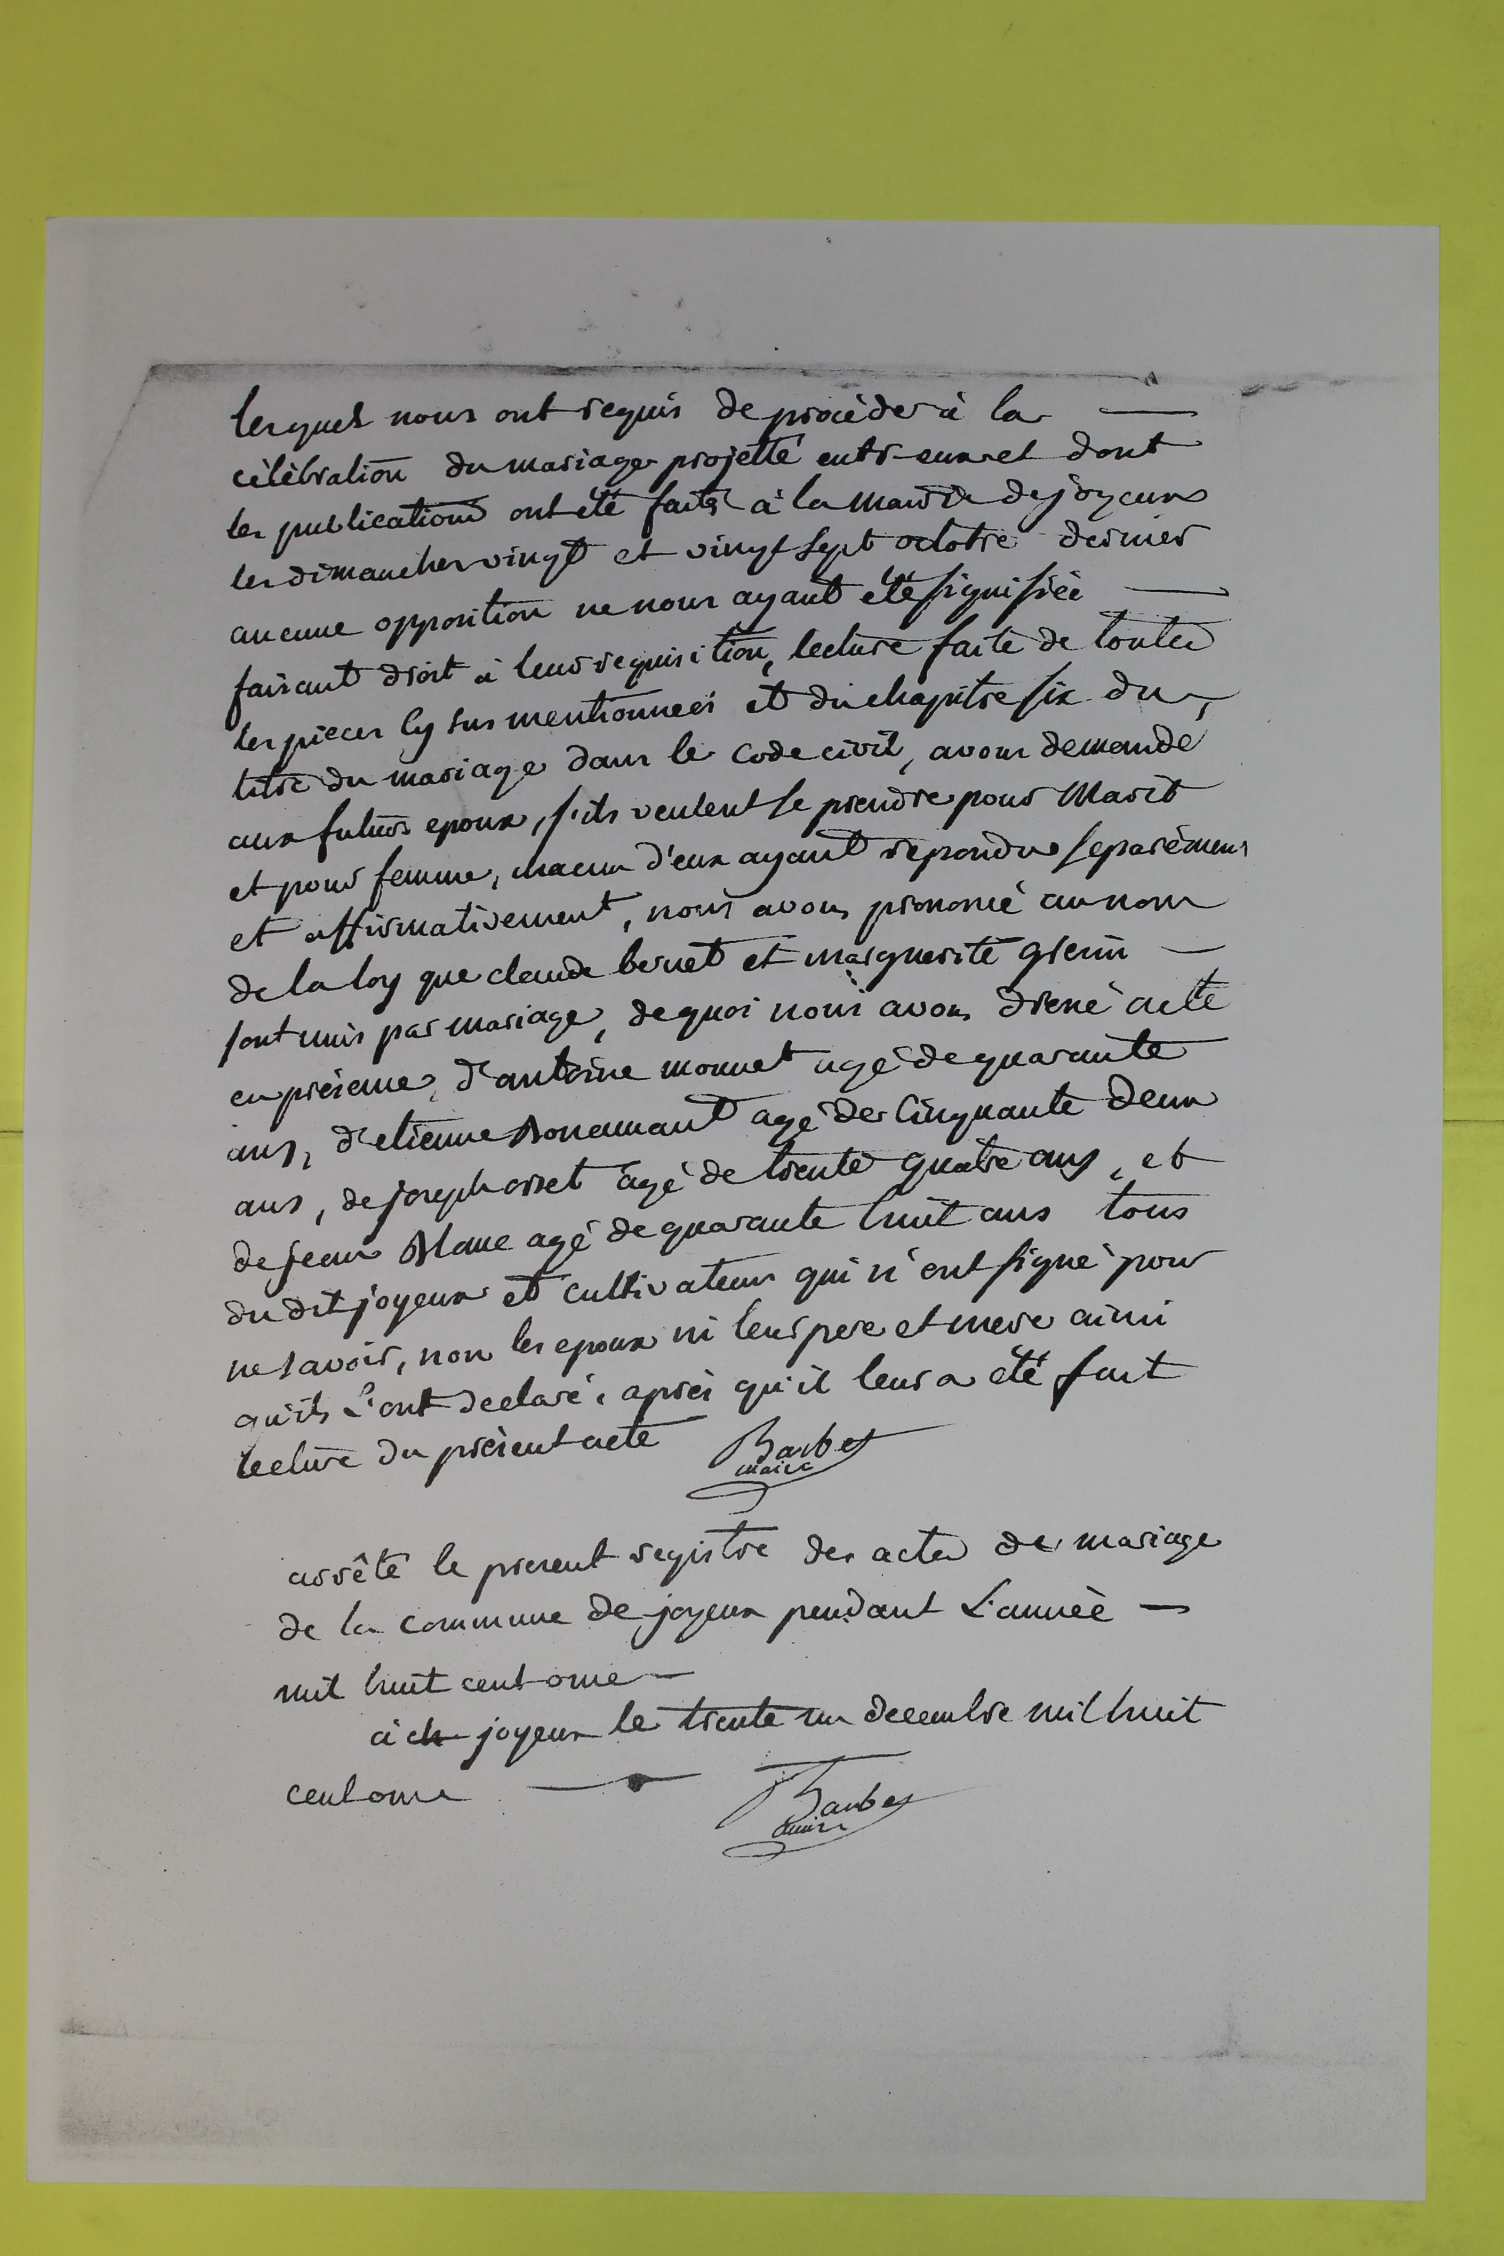 lesquels nous ont requis de procéder à la
célébration du mariage projetté entr'eux et dont
les publications ont été faites à la mairie de joyeux
les dimanches vingt et vingt sept octobre dernier
aucune opposition ne nous ayant été signifiée
faisant droit à leur requisition, lecture faite de toutes
les pieces cy sus mentionnées et du chapitre six du
titre du mariage dans le code civil, avons demandé
aux futurs epoux, s'ils veulent se prendre pour Marit
et pour femme, chacun d'eux ayant repondu separément
et affirmativement, nous avons prononcé au nom
de la loy que claude bernet et marguerite
sont unis par mariage, de quoi nous avons acte
en présence, d'antoine monnet agé de quarante
ans, d'etienne agé de Cinquante deux
ans, de joseph agé de trente quatre ans, et
de jean Blanc agé de quarante huit ans tous
du dit joyeux et cultivateurs qui n'ont signé pour
ne savoir, non les epoux ni leurs pere et mere ainsi
qu'ils L'ont declaré, après qu'il leur a été fait
lecture du présent acte Barbet
maire
arrêté le present registre des actes de mariage
de la commune de joyeux pendant L'année
mil huit cent onze
à joyeux le trente un decembre mil huit
cent onze Barbet
maire